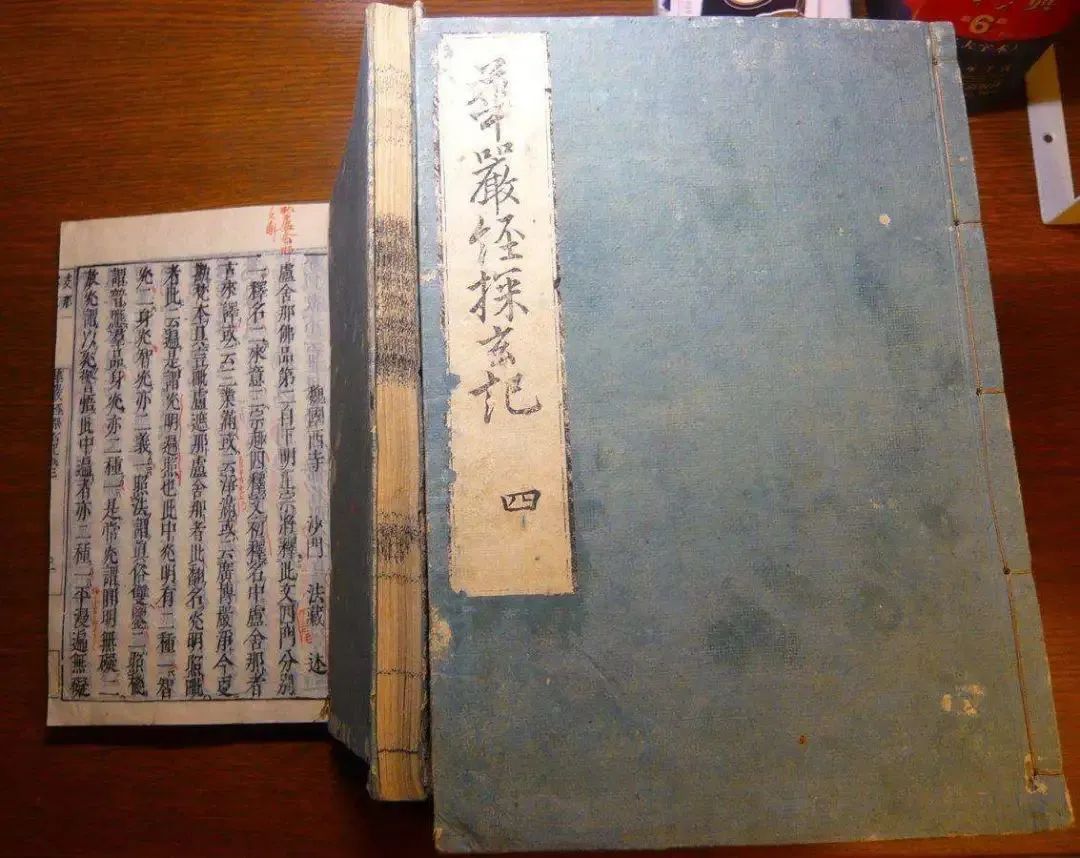 華嚴経探玄記
四
魏國西寺 沙門 法藏 述
盧舍那佛品第二自下明正宗將釋此文四門分別
一釋名二來意三宗趣四釋文初釋名中盧舍那者
古來譯或云三業滿或云淨滿或云廣博嚴淨今更
勘梵本具言毗盧遮那盧舍那者此翻名光明照毗
者此云遍是謂光明遍照也此中光明有二種一智
光二身光智光亦二義一照法謂真俗雙鑒二照機
謂普應羣品身光亦二種一是常光謂圓明無礙二
放光謂以光警悟此中遍者亦二種一平漫遍無礙
6